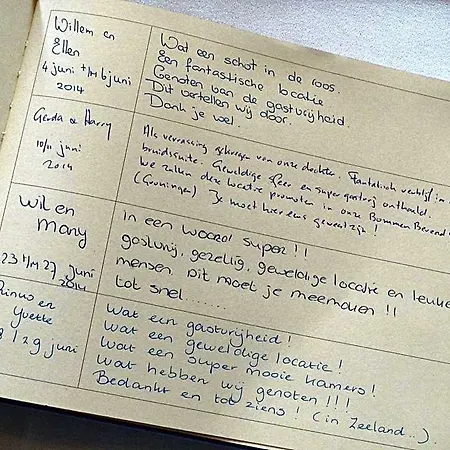 Willem en
Ellen
4 juni t/m 6 juni
2014
Wat een schot in de roos.
Een fantastische locatie
Genoten van de gastvrijheid.
Dit vertellen wij door.
Dank je wel.
Gerda & Harry
10/11 juni
2014
Als verrassing gekregen van onze dochter. Fantastisch verblijf in
bruidssuite. Geweldige sfeer en super gastvrij onthaald.
We zullen deze locatie promoten in onze Bommen Berend
(Groningen) Je moet hier eens geweest zijn!
Wil en
Many
23 t/m 27 juni
2014
In een woord super!!
gastvrij, gezellig, geweldige locatie en leuke
mensen. Dit moet je meemaken!!
tot snel.......
Rinus en
Yvette
29 juni
Wat een gastvrijheid!
Wat een geweldige locatie!
Wat een super mooie kamers!
Wat hebben wij genoten!!!
Bedankt en tot ziens! (in Zeeland..).